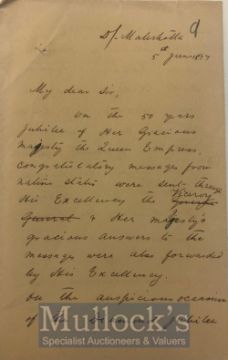 D/. Malerkotla 9
5th June 1897
My dear Sir,
On the 50 years
Jubilee of Her Gracious
Majesty the Queen Empress,
congratulatory messages from
native states were sent through
His Excellency the Viceroy
General & Her Majesty's
gracious answers to the
messages were also forwarded
by His Excellency.
On the auspicious occasion
of Jubilee
Mullock's
Specialist Auctioneers & Valuers